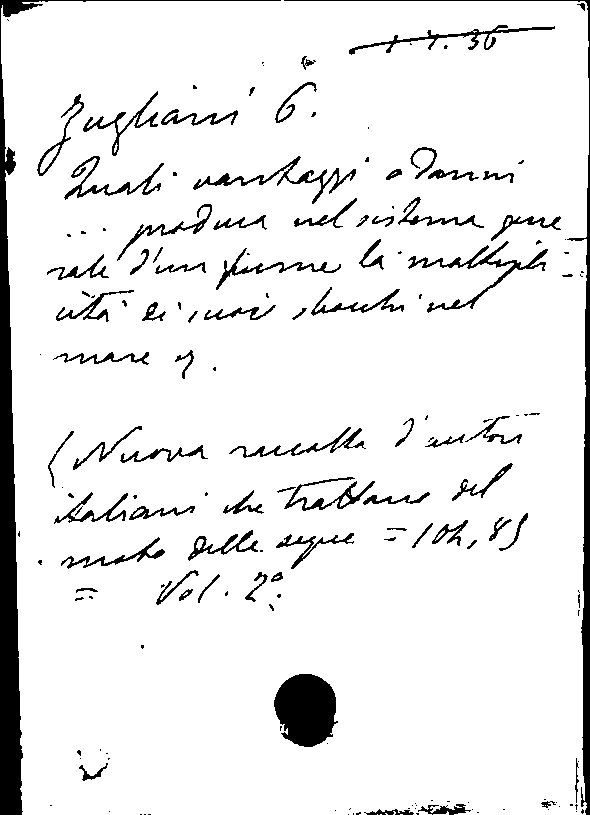 1. 7. 36
Zugliani G.
Quali vantaggi o danni
... produca nel sistema gene
rale d'un fiume la moltipli =
cità di suoi sbocchi nel
mare
(Nuova raccolta d'autori
italiani che trattano del
moto delle acque =
= Vol. 2º.